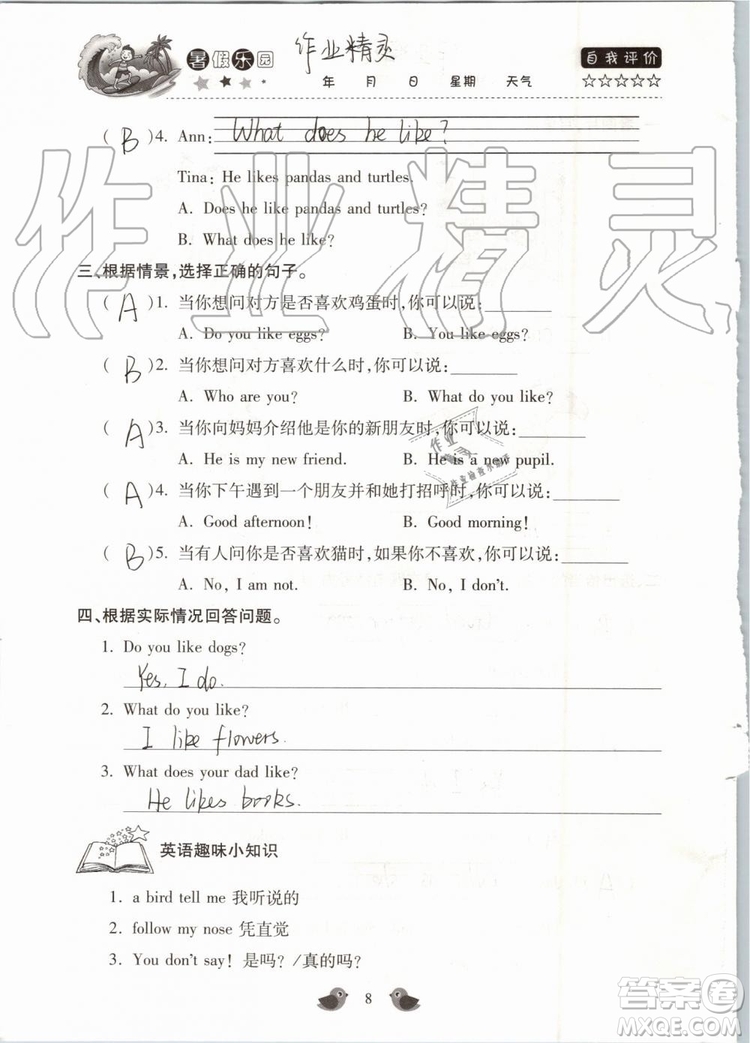 暑假乐园
作业精灵
自我评价
年 月 日 星期 天气
☆☆☆☆☆
( B )4. Ann: What does he like?
Tina: He likes pandas and turtles.
A. Does he like pandas and turtles?
B. What does he like?
三、根据情景,选择正确的句子。
( A )1. 当你想问对方是否喜欢鸡蛋时,你可以说:________
A. Do you like eggs? B. You like eggs?
( B )2. 当你想问对方喜欢什么时,你可以说:________
A. Who are you? B. What do you like?
( A )3. 当你向妈妈介绍他是你的新朋友时,你可以说:________
A. He is my new friend. B. He is a new pupil.
( A )4. 当你下午遇到一个朋友并和她打招呼时,你可以说:________
A. Good afternoon! B. Good morning!
( B )5. 当有人问你是否喜欢猫时,如果你不喜欢,你可以说:________
A. No, I am not. B. No, I don't.
四、根据实际情况回答问题。
1. Do you like dogs?
Yes, I do.
2. What do you like?
I like flowers.
3. What does your dad like?
He likes books.
英语趣味小知识
1. a bird tell me 我听说的
2. follow my nose 凭直觉
3. You don't say! 是吗? /真的吗?
8
作业精灵
答案圈
MXQE.COM